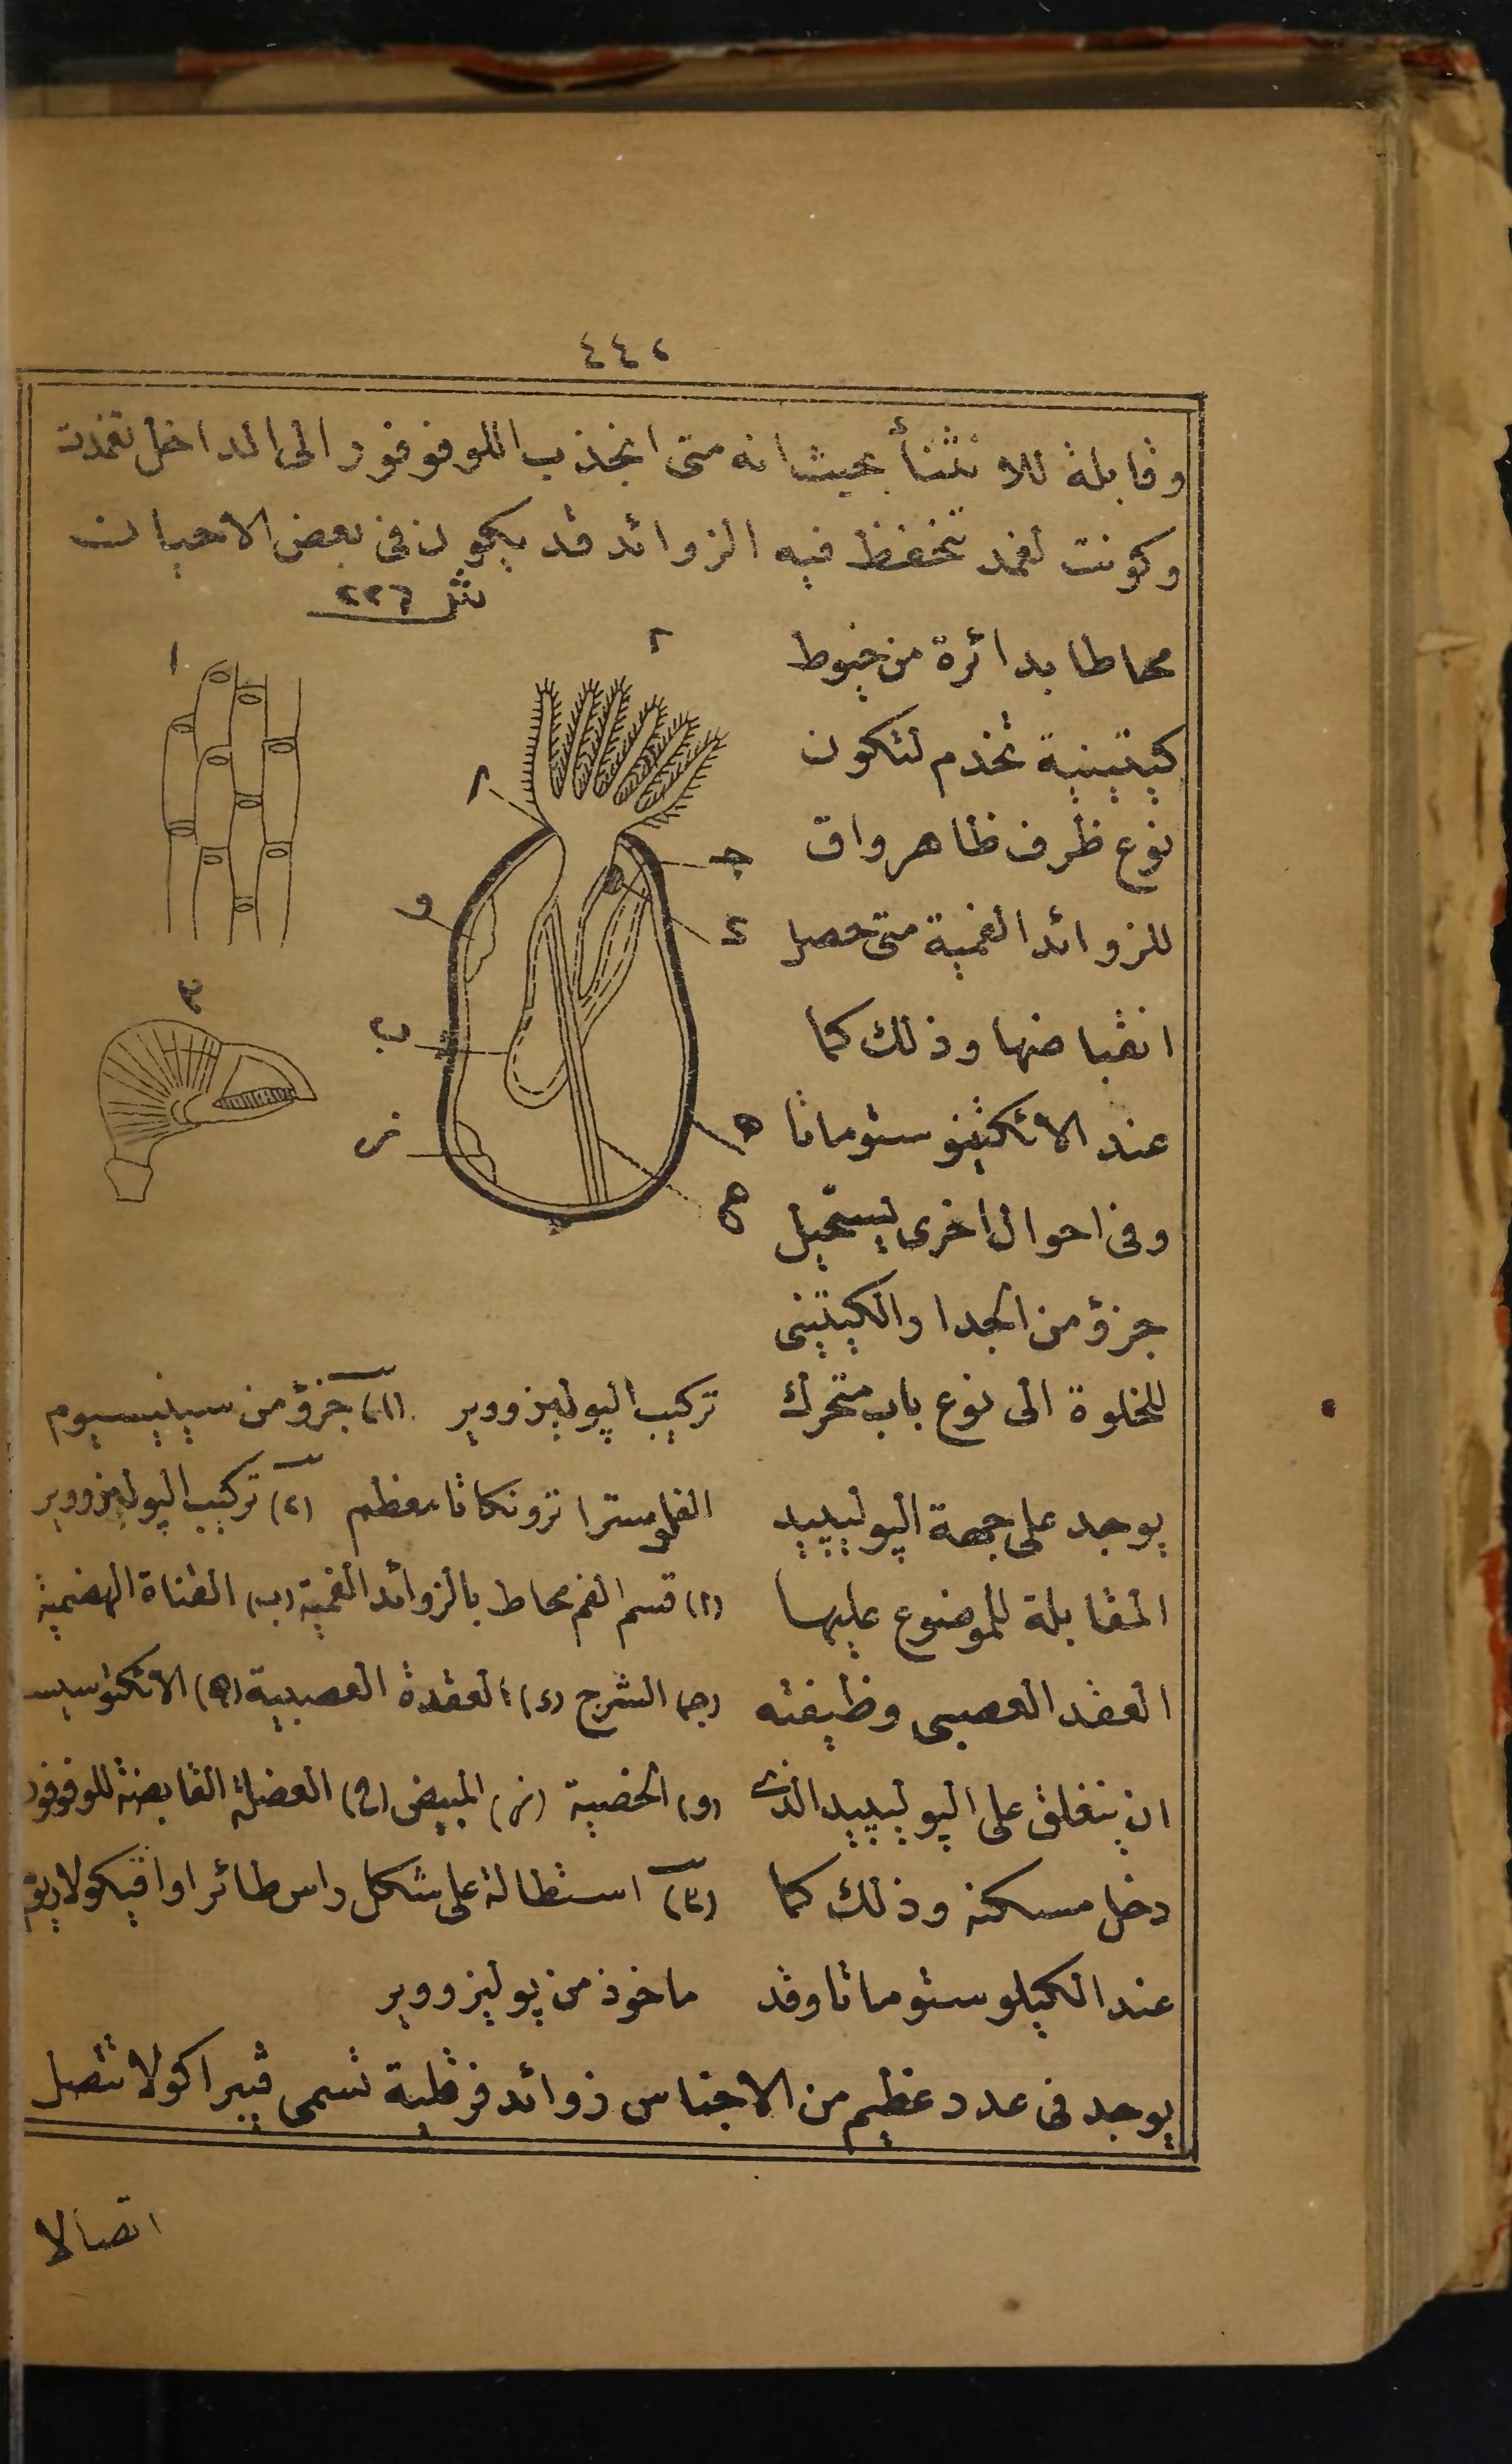 ٤٤٢
وقابلة للانثناء بحيث انه متى انجذب اللوفوفور الى الداخل تغمدت
وكونت لغمد تتحفظ فيه الزوائد قد يكون فى بعض الاحيان
محاطا بدائرة من خيوط
كيتينية تخدم لتكون
نوع ظرف ظاهر واق
للزوائد الفمية متى حصل
انقباضها وذلك كما
عند الاتكتينوستوماتا
وفى احوال اخرى يستحيل
جزؤ من الجدار الكيتينى
للخلوة الى نوع باب متحرك
يوجد على جهة الپوليپييد
المقابلة للموضوع عليها
العقد العصبى وظيفته
ان ينغلق على الپوليپييد الذى
دخل مسكنه وذلك كما
عند الكيلوستوماتا وقد
شر ٢٢٦
١
٢
٣
١
ج
د
و
ب
ه
ز
ح
تركيب الپوليزووير (١) جزؤ من سيلنيسيوم
الفلوسترا ترونكاتا معظم (٢) تركيب الپوليزووير
(١) قسم الفم محاط بالزوائد الفمية (ب) القناة الهضمية
(ج) الشرج (د) العقدة العصبية (ه) الاتكتوسيست
(و) الخصية (ز) المبيض (ح) العضلة القابضة للوفوفور
(٣) استطالة على شكل راس طائر اواڤيكولاريوم
ماخوذ من پوليزووير
يوجد فى عدد عظيم من الاجناس زوائد فرقلية تسمى ڤيبراكولا تتصل
اتصالا